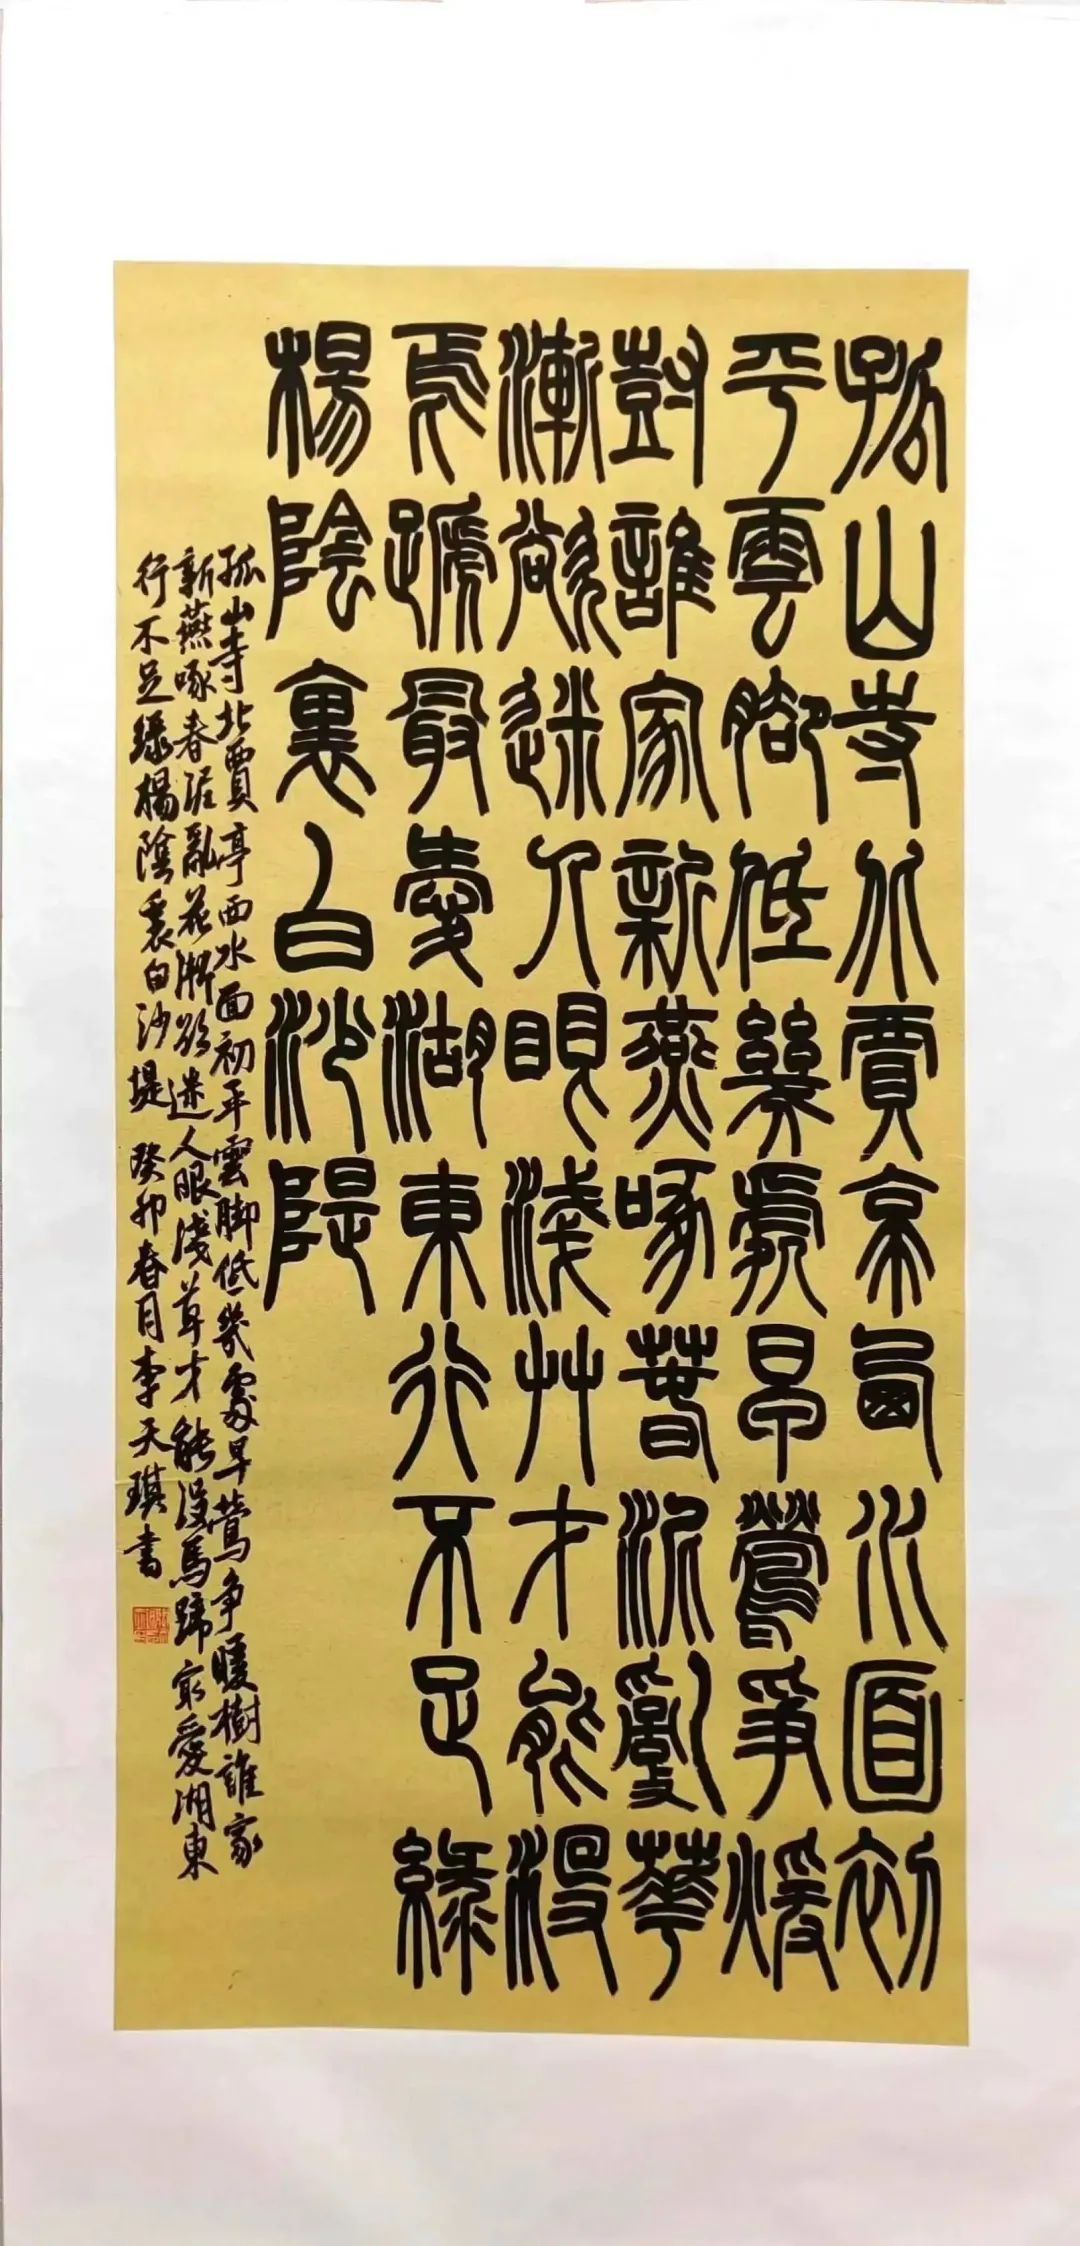 孤山寺北賈亭西水面初
平雲腳低幾處早鶯爭暖
樹誰家新燕啄春泥亂華
漸欲迷人眼淺艸才能沒
馬蹄最愛湖東行不足綠
楊陰裏白沙隄
孤山寺北賈亭西水面初平雲脚低幾處早鶯争暖樹誰家
新燕啄春泥亂花漸欲迷人眼淺草才能沒馬蹄最愛湖東
行不足綠楊陰裏白沙堤 癸卯春月李天琪書